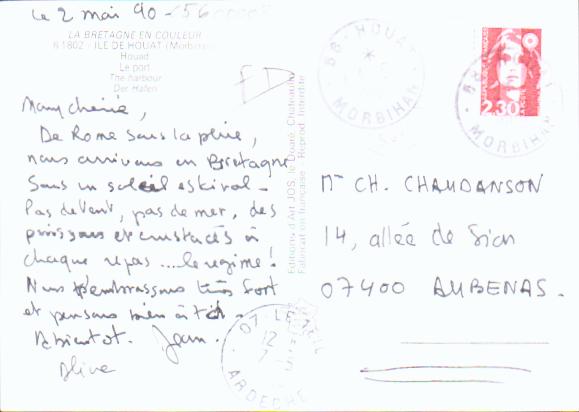 Le 2 mai 90 - 56
LA BRETAGNE EN COULEUR
ILE DE HOUAT (Morbihan)
Houad
Le port
The harbour
Der Hafen
Mamy chérie,
De Rome sous la pluie,
nous arrivons en Bretagne
sous un soleil estival -
Pas de vent, pas de mer, des
poissons et crustacés à
chaque repas .... le régime !
Nous t'embrassons très fort
et pensons bien à toi -
A bientôt. Jean.
Editions d'Art JOS, le Doaré, Chateaulin
Fabrication française - Reprod. Interdite
56 - HOUAT
MORBIHAN
2,30
MORBIHAN
CH. CHAUDANSON
14, allée de Sion
07400 AUBENAS -
07 LE TEIL
12
ARDECHE